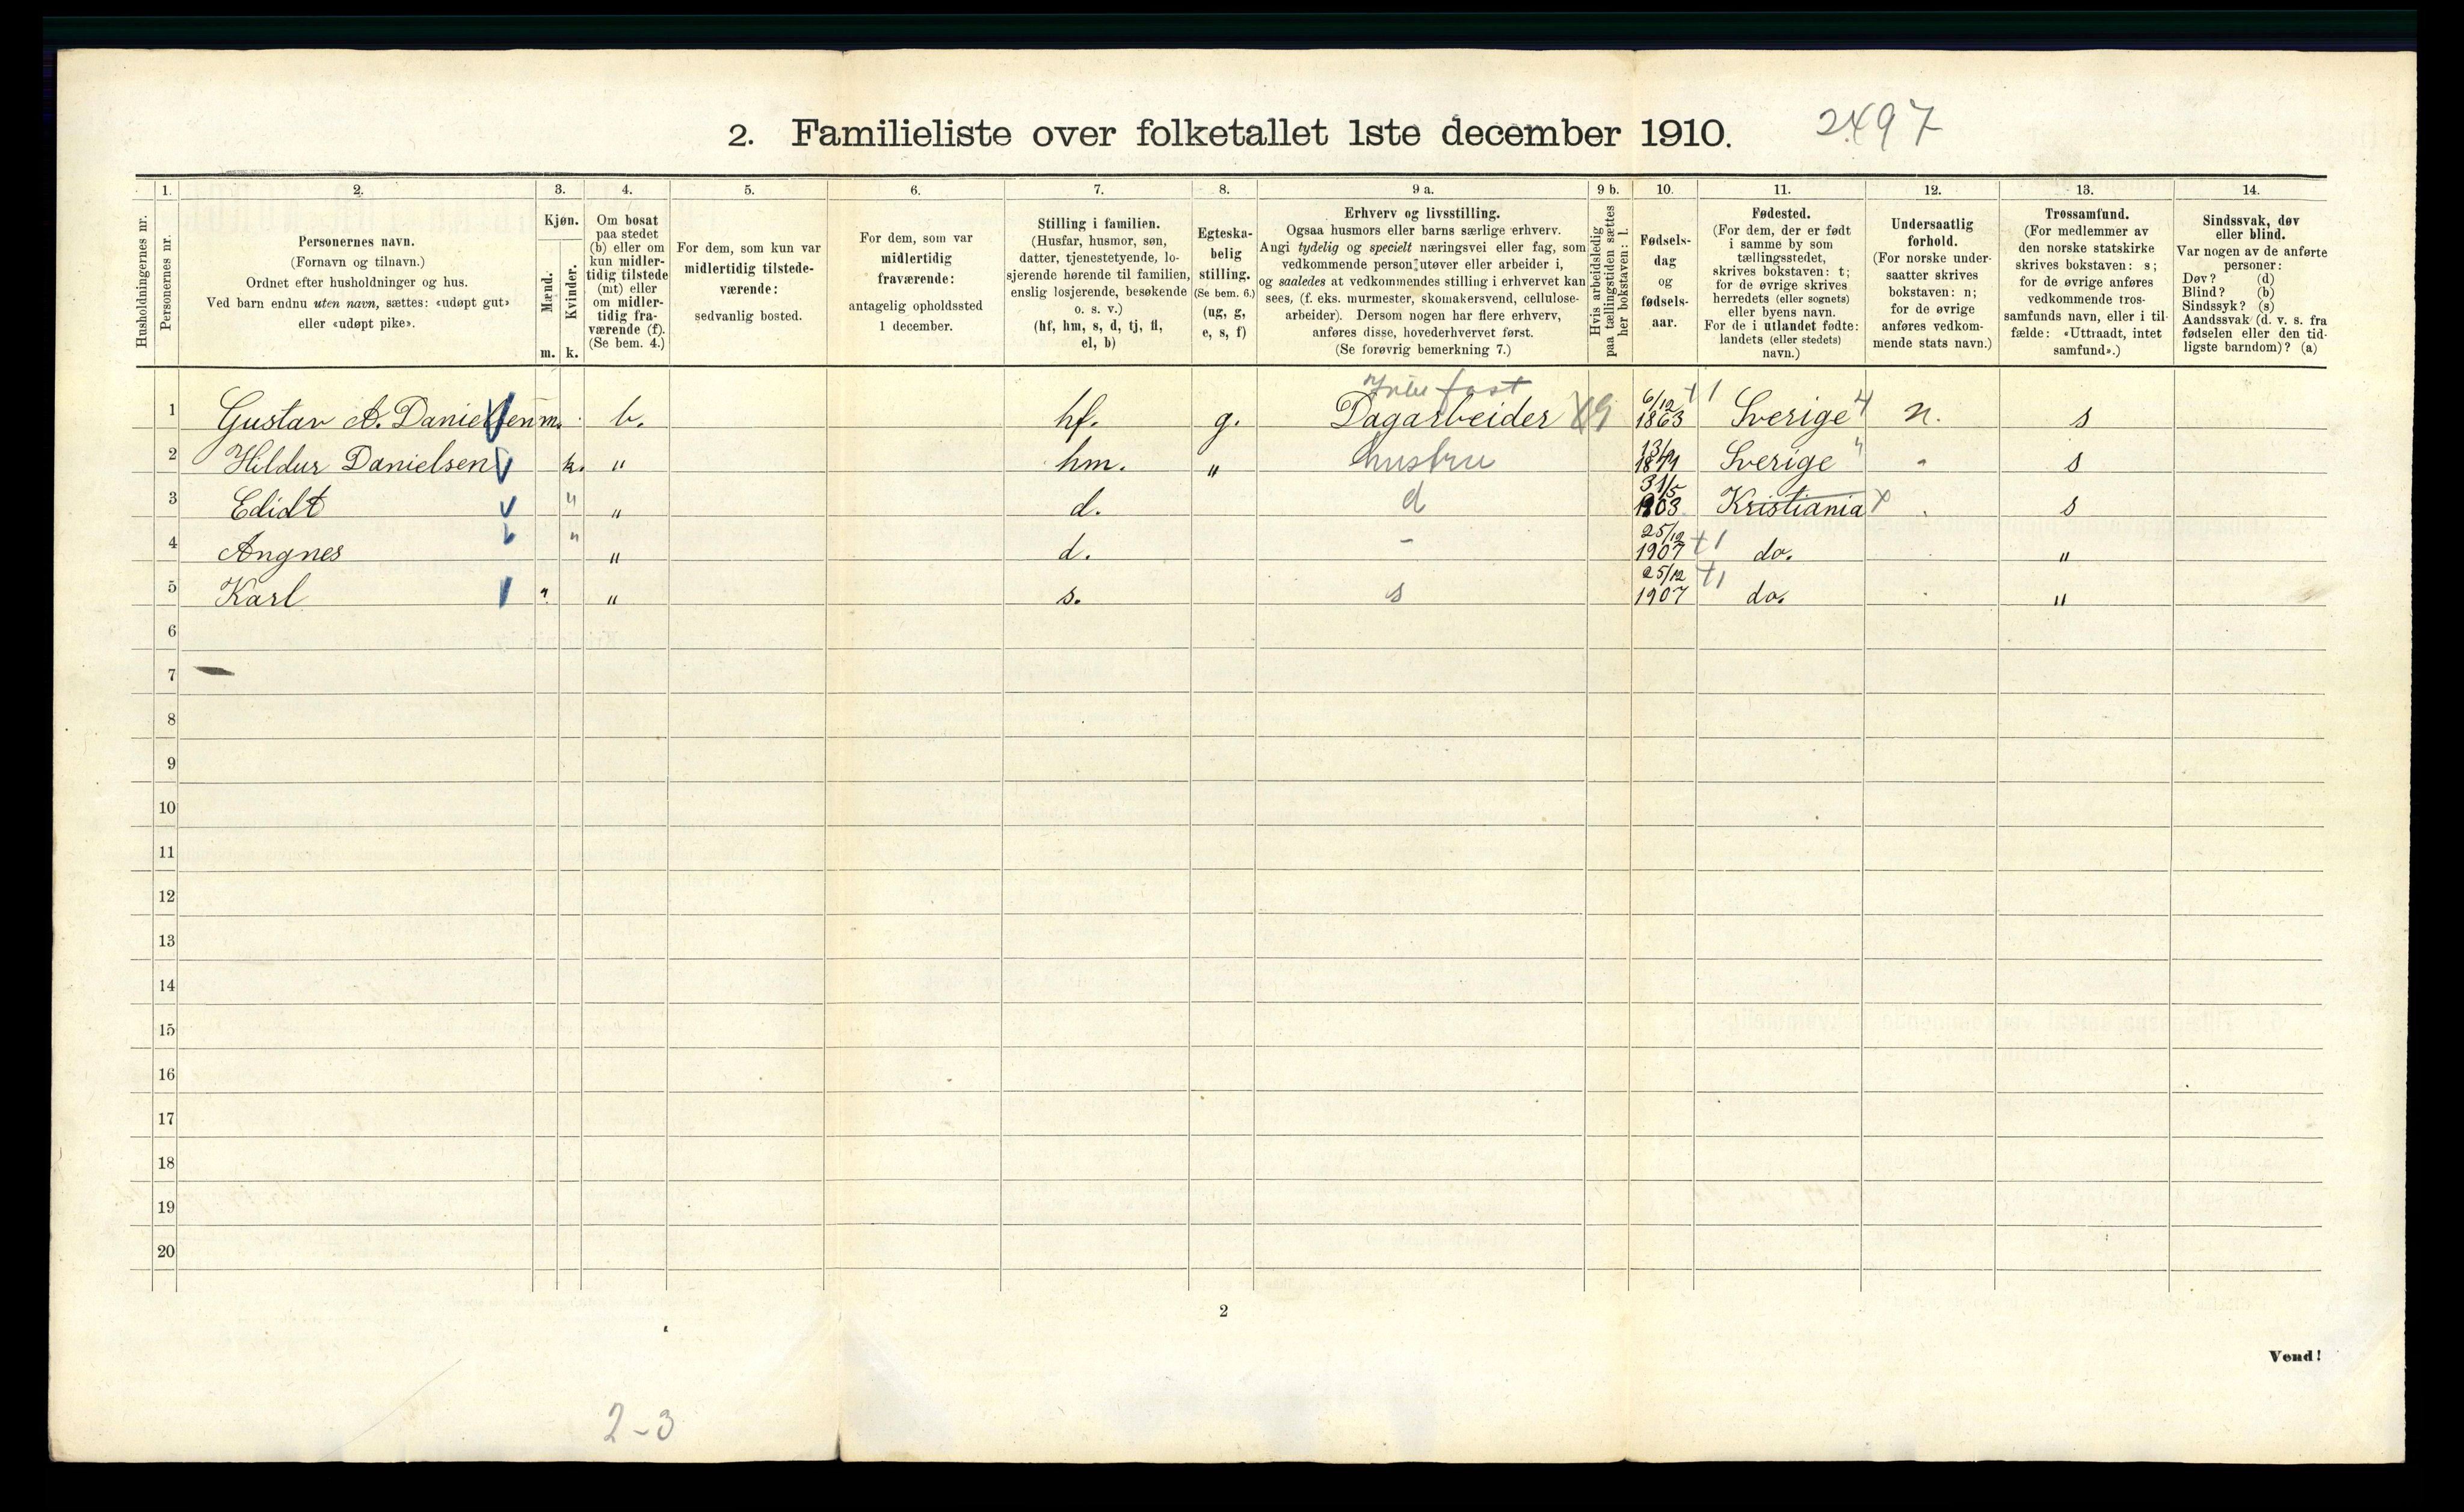 2. Familieliste over folketallet 1ste december 1910. 2497
1. 2. 3. 4. 5. 6. 7. 8. 9 a. 9 b. 10. 11. 12. 13. 14.
Husholdningernes nr.
Personernes nr.
Personernes navn.
(Fornavn og tilnavn.)
Ordnet efter husholdninger og hus.
Ved barn endnu uten navn, sættes: «udøpt gut»
eller «udøpt pike».
Kjøn.
Mænd.
Kvinder.
m. k.
Om bosat
paa stedet
(b) eller om
kun midler-
tidig tilstede
(mt) eller
om midler-
tidig fra-
værende (f).
(Se bem. 4.)
For dem, som kun var
midlertidig tilstede-
værende:
sedvanlig bosted.
For dem, som var
midlertidig
fraværende:
antagelig opholdssted
1 december.
Stilling i familien.
(Husfar, husmor, søn,
datter, tjenestetyende, lo-
sjerende hørende til familien,
enslig losjerende, besøkende
o. s. v.)
(hf, hm, s, d, tj, fl,
el, b)
Egteska-
belig
stilling.
(Se bem. 6.)
(ug, g,
e, s, f)
Erhverv og livsstilling.
Ogsaa husmors eller barns særlige erhverv.
Angi tydelig og specielt næringsvei eller fag, som
vedkommende person utøver eller arbeider i,
og saaledes at vedkommendes stilling i erhvervet kan
sees, (f. eks. murmester, skomakersvend, cellulose-
arbeider). Dersom nogen har flere erhverv,
anføres disse, hovederhvervet først.
(Se forøvrig bemerkning 7.)
Hvis arbeidsledig
paa tællingstiden sættes
her bokstaven: l.
Fødsels-
dag
og
fødsels-
aar.
Fødested.
(For dem, der er født
i samme by som
tællingsstedet,
skrives bokstaven: t;
for de øvrige skrives
herredets (eller sognets)
eller byens navn.
For de i utlandet fødte:
landets (eller stedets)
navn.)
Undersaatlig
forhold.
(For norske under-
saatter skrives
bokstaven: n;
for de øvrige
anføres vedkom-
mende stats navn.)
Trossamfund.
(For medlemmer av
den norske statskirke
skrives bokstaven: s;
for de øvrige anføres
vedkommende tros-
samfunds navn, eller i til-
fælde: «Uttraadt, intet
samfund».)
Sindssvak, døv
eller blind.
Var nogen av de anførte
personer:
Døv? (d)
Blind? (b)
Sindssyk? (s)
Aandssvak (d. v. s. fra
fødselen eller den tid-
ligste barndom)? (a)
1 Gustav A. Danielsen m. b. hf. g. fast Dagarbeider 6/12 1863 Sverige n. s
2 Hildur Danielsen k. " hm. " hustru Sverige s
3 Edidt " " d. d 31/5 1903 Kristiania s
4 Angnes " " d. - 25/12 1907 do. "
5 Karl " " s. s 25/12 1907 do. "
6
7
8
9
10
11
12
13
14
15
16
17
18
19
20
2
Vend!
2-3